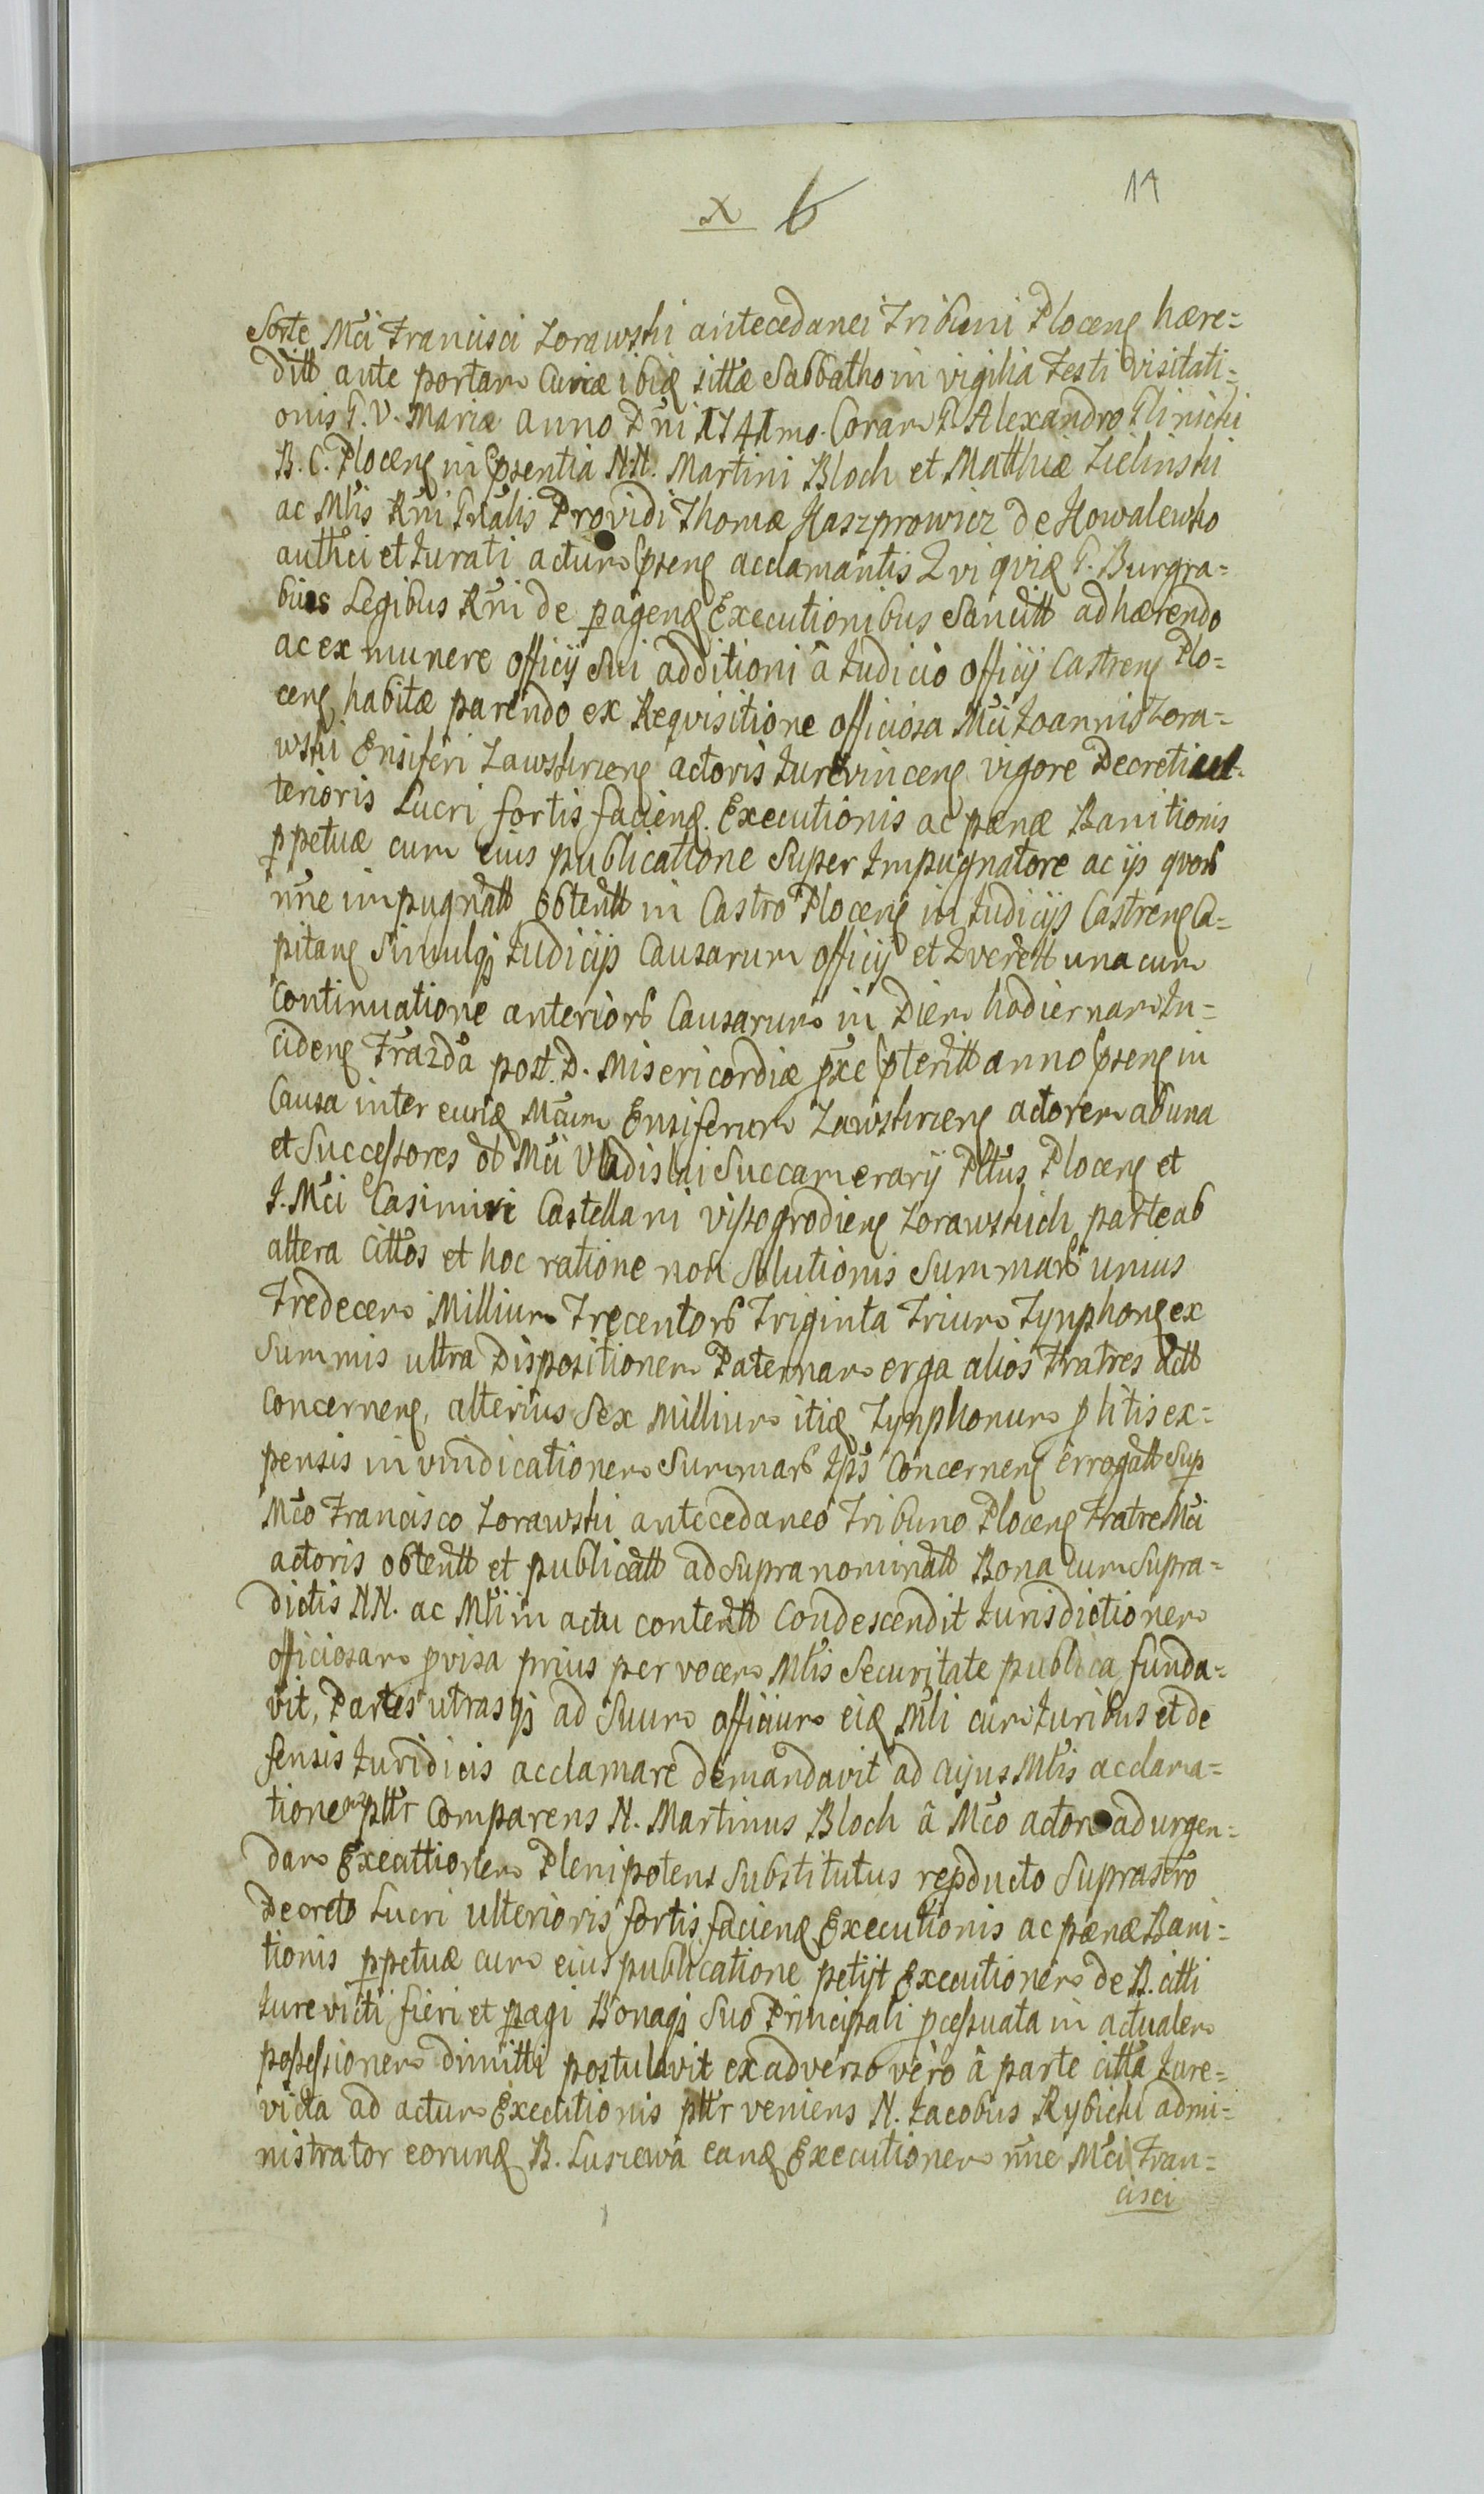 x 6
19
Sorte Mci Francisci Zorawski antecedanei Tribuni Plocen hære=
ditt ante portam Curiæ ibid sittæ Sabbatho in vigilia Festi Visitati=
onis G. V. Mariæ Anno Dni 1741mo. Coram G. Alexandro Glinicki
B. C. Plocen in psentia N.N. Martini Bloch et Matthiæ Zielinski
ac Mlis Rni Gnalis Providi Thomæ Kaszprowicz de Kowalewko
authci et Jurati actum psen acclamantis Qvi qvid G. Burgra=
bius Legibus Rni de pagend Executionibus Sancitt adhærendo
ac ex munere officij Sui additioni â Judicio Officij Castren Plo=
cen habitæ parendo ex Reqvisitione officiosa Mci Joannis Zora=
wski Ensiferi Zawskrnen actoris Jurevincen vigore Decreti ul=
terioris Lucri fortis faciend. Executionis ac pænæ Banitionis
ppetuæ cum eius publicatione Super Impugnatore ac ijs qvorb
nne impugnatt obtentt in Castro Plocen in Judicijs Castren Ca=
pitan Simulqz Judicijs Causarum officij et Qverett una cum
Continuatione anteriorb Causarum in Diem hodiernam In=
ciden Fra2da post. D. Misericordiæ pxe pteritt anno psen in
Causa inter eund Mcum Ensiferum Zawskrnen actorem ab una
et Successores ol Mci Vladislai Succamerarij Pltus Plocen et
J. Mci Casimiri Castellani Vissogrodien Zorawskich parte ab
altera Cittos et hoc ratione non Solutionis Summarb unius
Tredecem Millium Trecentorb Triginta Trium Tynphon ex
Summis ultra Dispositionem Paternam erga alios Fratres dtt
Concernen, alterius Sex Millium itid Tynphonum p litis ex=
pensis in vindicationem Summarb Ips Concernen errogatt Sup
Mco Francisco Zorawski antecedaneo Tribuno Plocen Fratre Mci
actoris obtentt et publicatt ad Supranominatt Bona cum Supra=
dictis NN. ac Mli in actu contentt Condescendit Jurisdictionem
officiosam pvisa prius per vocem Mlis Securitate publica funda=
vit, Partes utrasqz ad Suum officium eid Mli cum Juribus et de
fensis Juridicis acclamare demandavit ad cujus Mlis acclama=
tionem pltr Comparens N. Martinus Bloch â Mco actore ad urgen=
dam Execttionem Plenipotens Substitutus repducto Suprascro
Decreto Lucri ulterioris fortis faciend Executionis ac pænæ Bani=
tionis ppetuæ cum eius publicatione petijt Executionem de B. citti
Jurevicti fieri et pagi Bonaqz Suo Principali pcessuata in actualem
possessionem dimitti postulavit ex adverso vero â parte citta Jure=
victa ad actum Executionis pltr veniens N. Jacobus Rybicki admi=
nistrator eorund B. Luszewa eand Executionem nne Mci Fran=
cisci